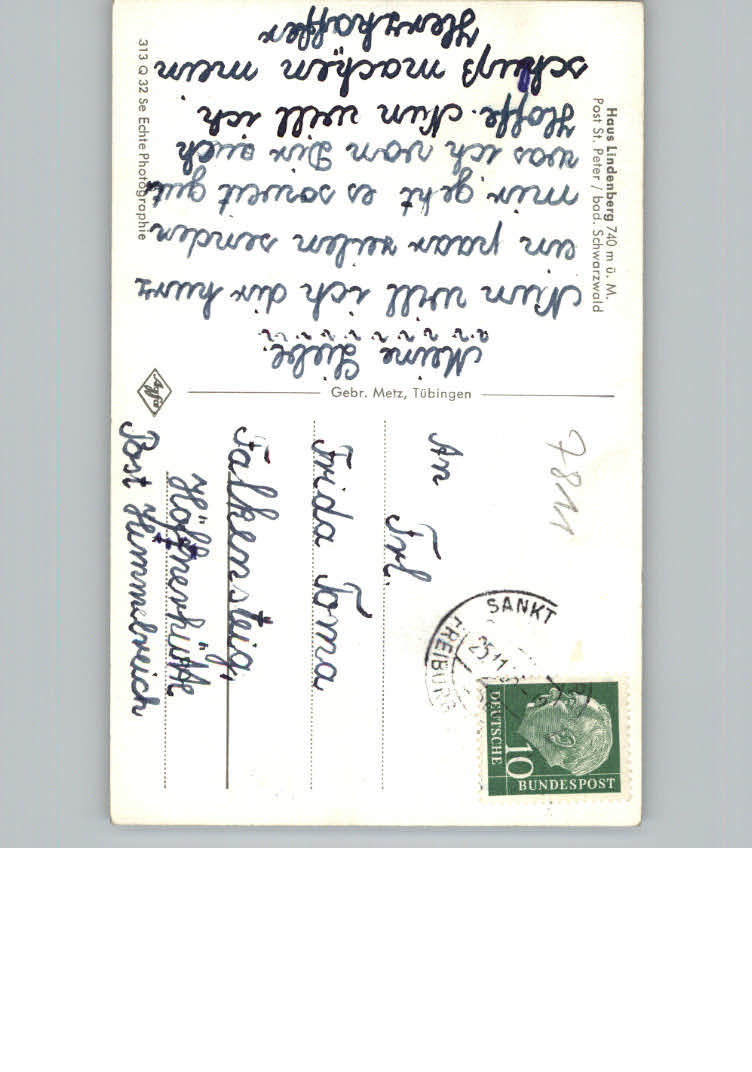 Haus Lindenberg 740 m ü. M.
Post St. Peter / bad. Schwarzwald
Meine Liebe.
Nun will ich dir kurz
ein paar zeilen senden
mir geht es soweit gut
was ich von Dir auch
Hoffe. Nun will ich
schluß machen mein
313 Q 32 Se Echte Photographie
Gebr. Metz, Tübingen
Agfa
7811
An
Frl.
Frida Toma
Falkensteig,
Höfnerhütte
Post Himmelreich
SANKT
FREIBURG
25.11.
DEUTSCHE
BUNDESPOST
10